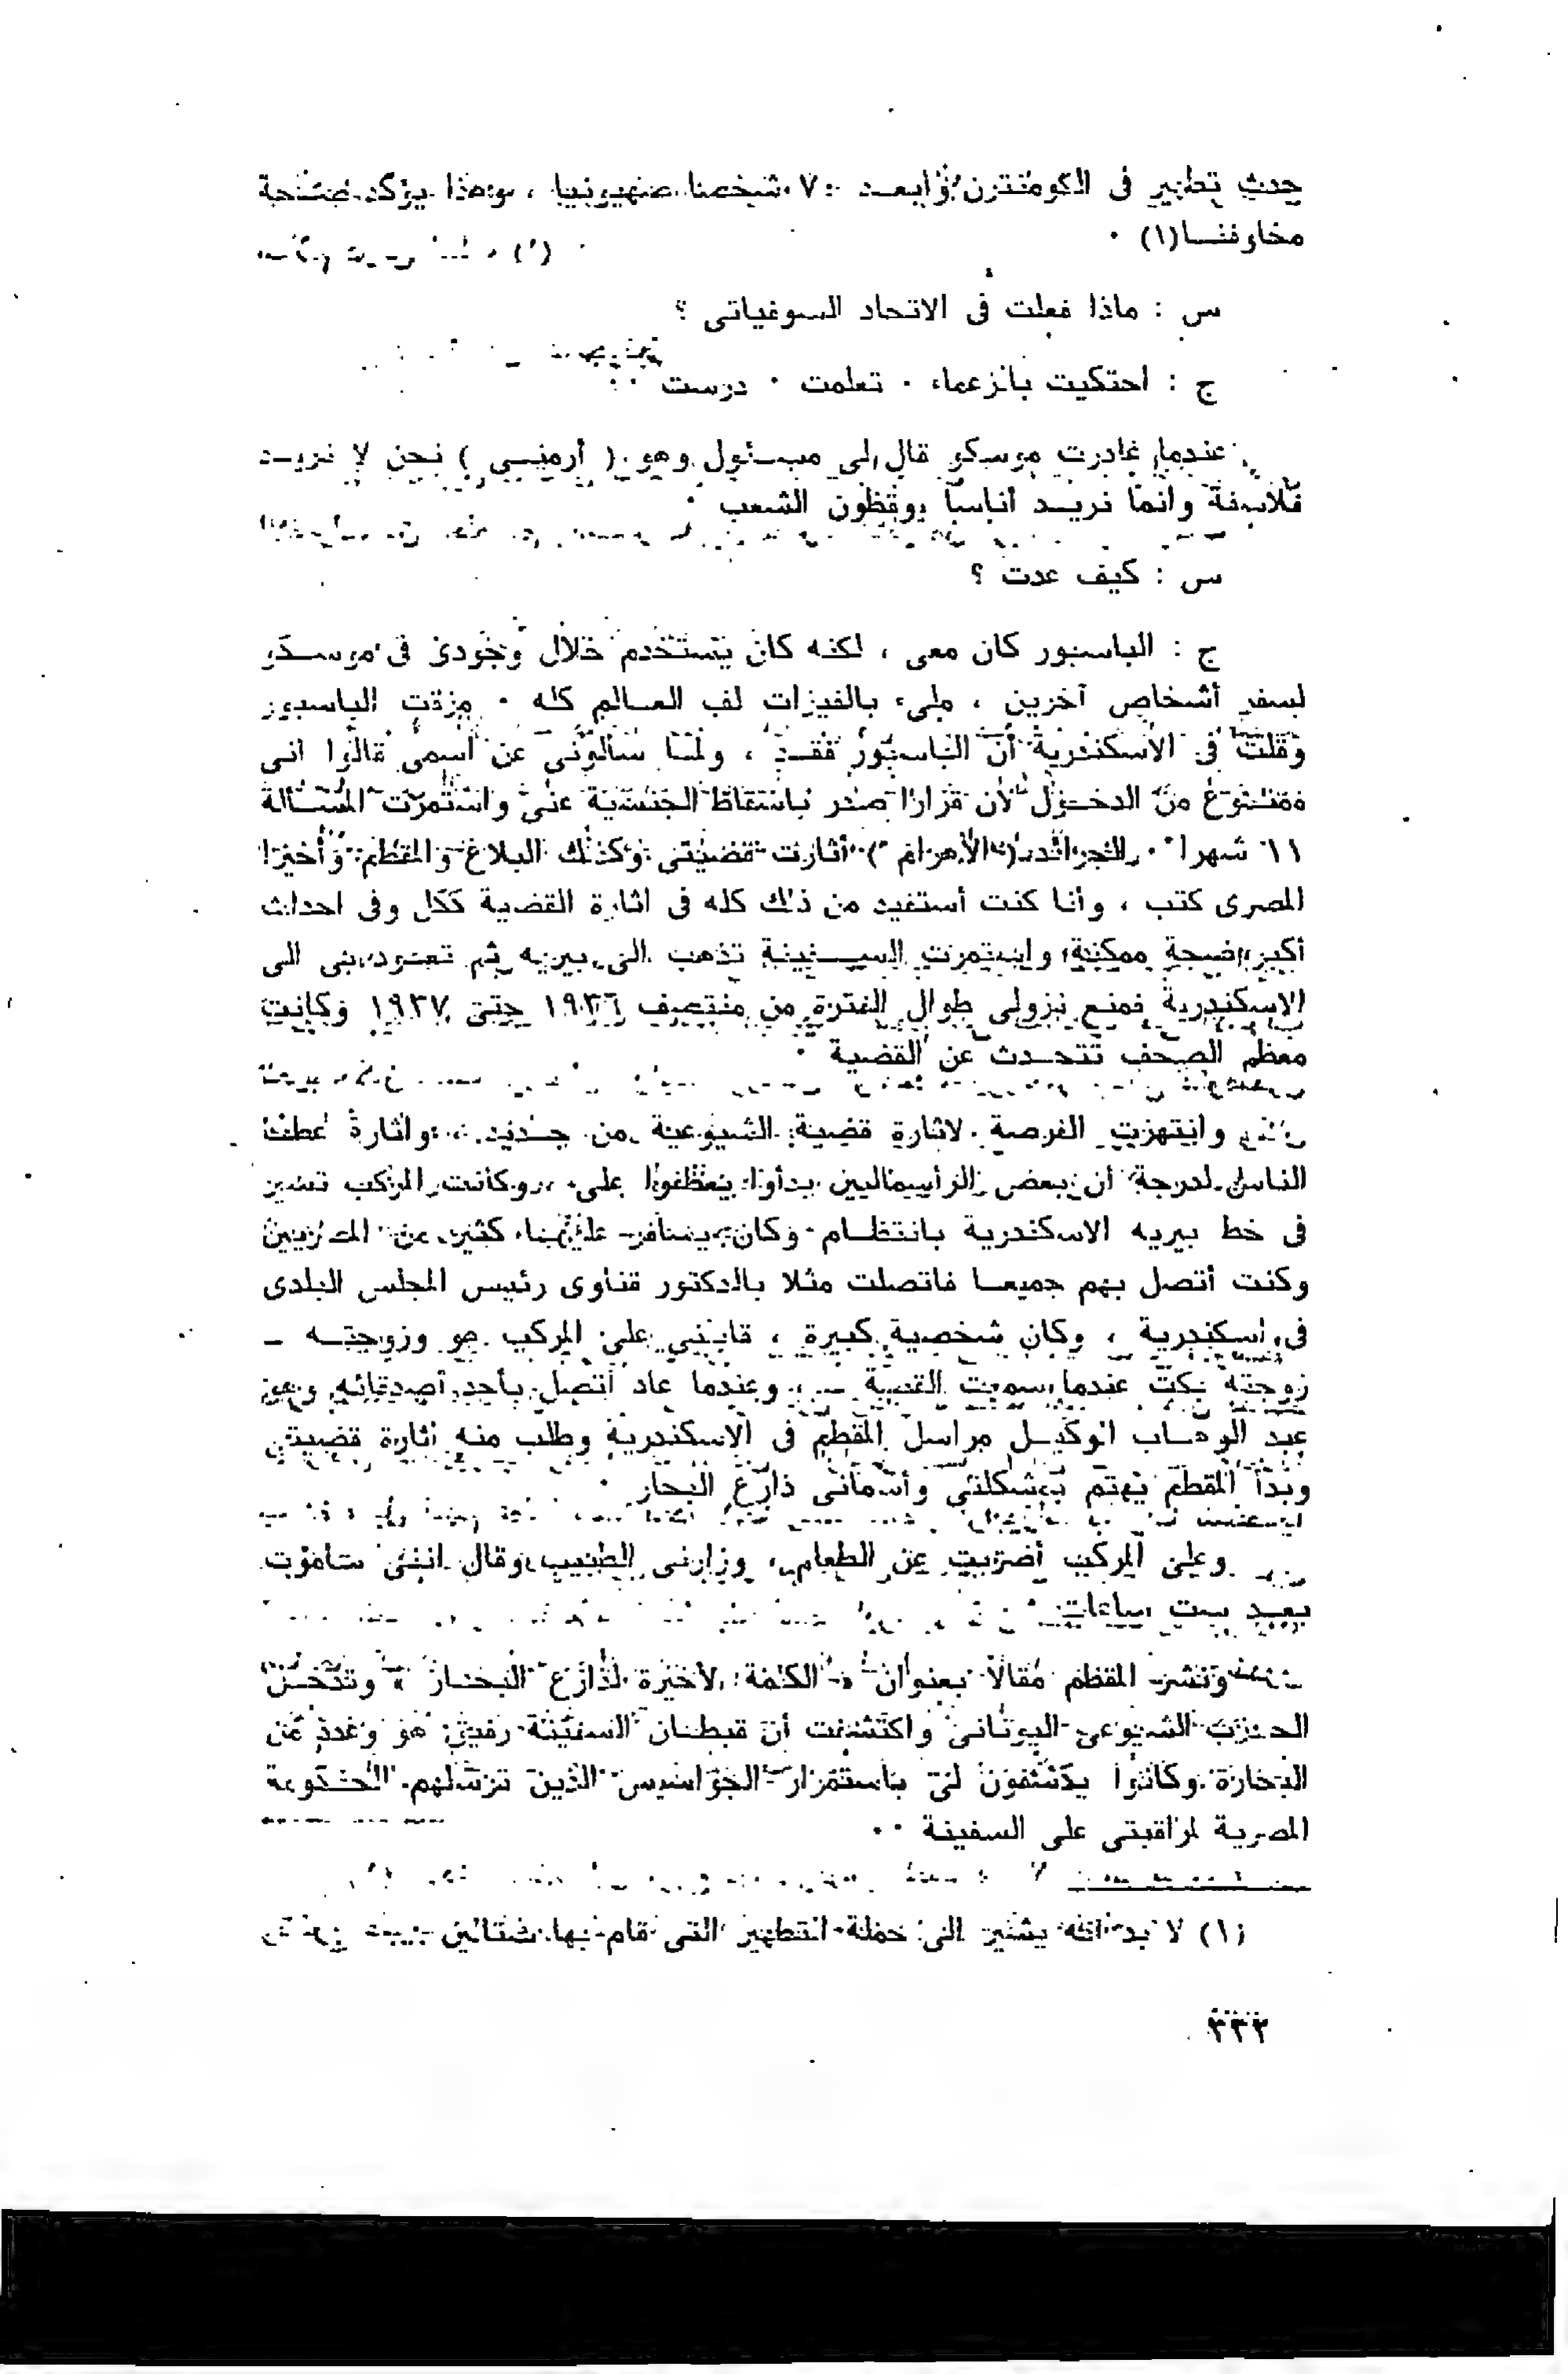 حدث تطهير فى الكومنترن وأبعد ٧٠ شخصا صهيونيا ، وهذا يؤكد صحة
مخاوفنا(١) ٠
س : ماذا فعلت فى الاتحاد السوفياتى ؟
ج : احتكيت بالزعماء ٠ تعلمت ٠ درست ٠٠
عندما غادرت موسكو قال لى مسئول وهو ( أرمنى ) نحن لا نريد
فلاسفة وانما نريد أناسا يوقظون الشعب ٠
س : كيف عدت ؟
ج : الباسبور كان معى ، لكنه كان يستخدم خلال وجودى فى موسكو
لسفر أشخاص آخرين ، ملىء بالفيزات لف العالم كله ٠ مزقت الباسبور
وقلت فى الاسكندرية أن الباسبور فقد ، ولما سألونى عن اسمى قالوا انى
ممنوع من الدخول لأن قرارا صدر باسقاط الجنسية عنى واستمرت المسألة
١١ شهرا ٠ الجرائد ( الأهرام ) أثارت قضيتى وكذلك البلاغ والمقطم وأخيرا
المصرى كتب ، وأنا كنت أستفيد من ذلك كله فى اثارة القضية ككل وفى احداث
أكبر ضجة ممكنة واستمرت السفينة تذهب الى بيريه ثم تعود بى الى
الاسكندرية فمنع نزولى طوال الفترة من منتصف ١٩٣٦ حتى ١٩٣٧ وكانت
معظم الصحف تتحدث عن القضية ٠
وانتهزت الفرصة لاثارة قضية الشيوعية من جديد ، واثارة عطف
الناس لدرجة أن بعض الرأسماليين بدأوا يتعطفوا على ، وكانت المركب تسير
فى خط بيريه الاسكندرية بانتظام وكان يسافر عليها كثير من المصريين
وكنت أتصل بهم جميعا فاتصلت مثلا بالدكتور قناوى رئيس المجلس البلدى
فى اسكندرية ، وكان شخصية كبيرة ، قابلنى على المركب هو وزوجته ـ
زوجته بكت عندما سمعت القصة ـ وعندما عاد اتصل بأحد أصدقائه وهو
عبد الوهاب الوكيل مراسل المقطم فى الاسكندرية وطلب منه اثارة قضيتى
وبدأ المقطم يهتم بمشكلتى وأسمانى ذارع البحار ٠
وعلى المركب أضربت عن الطعام ، وزارنى الطبيب وقال اننى سأموت
بعد ست ساعات ٠
ونشر المقطم مقالا بعنوان « الكلمة الأخيرة لذارع البحار » وتدخل
الحزب الشيوعى اليونانى واكتشفت أن قبطان السفينة رفيق هو وعدد من
البحارة وكانوا يكشفون لى باستمرار الجواسيس الذين ترسلهم الحكومة
المصرية لمراقبتى على السفينة ٠٠
(١) لا بد أنه يشير الى حملة التطهير التى قام بها ستالين
٣٣٢